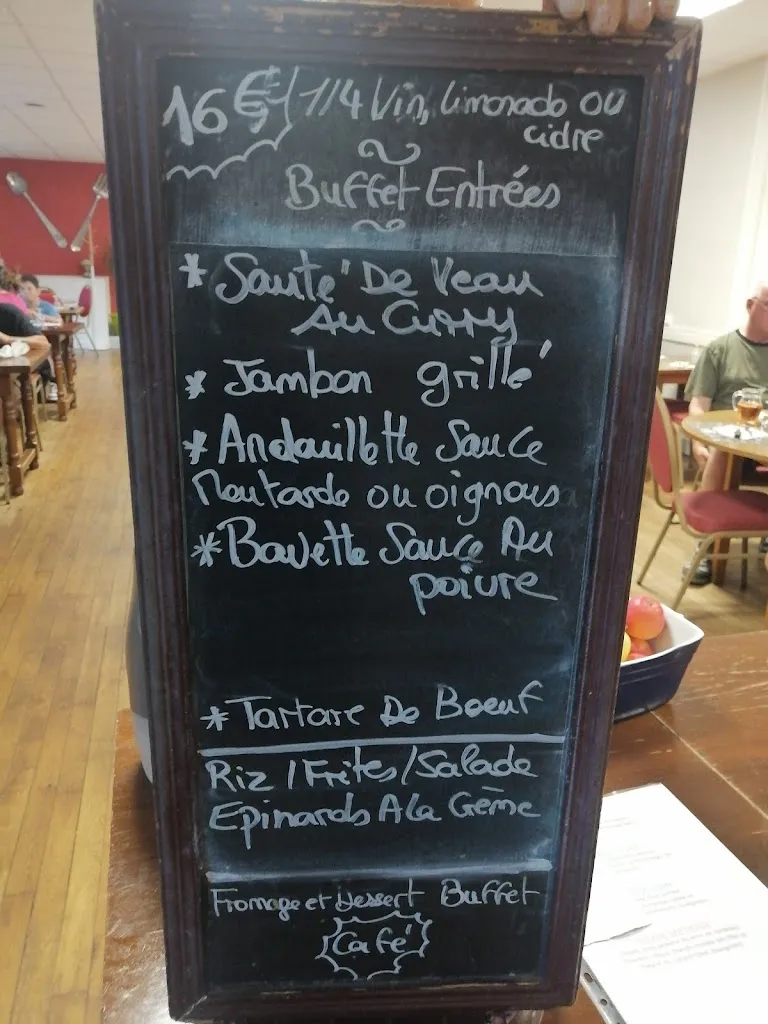 16€ 1/4 Vin, Limonade OU
cidre
Buffet Entrées
* Sauté De Veau
Au Curry
* Jambon grillé
* Andouillette Sauce
Moutarde ou oignons
* Bavette Sauce Au
poivre
* Tartare De Boeuf
Riz / Frites / Salade
Epinards A la Crème
Fromage et Dessert Buffet
Café